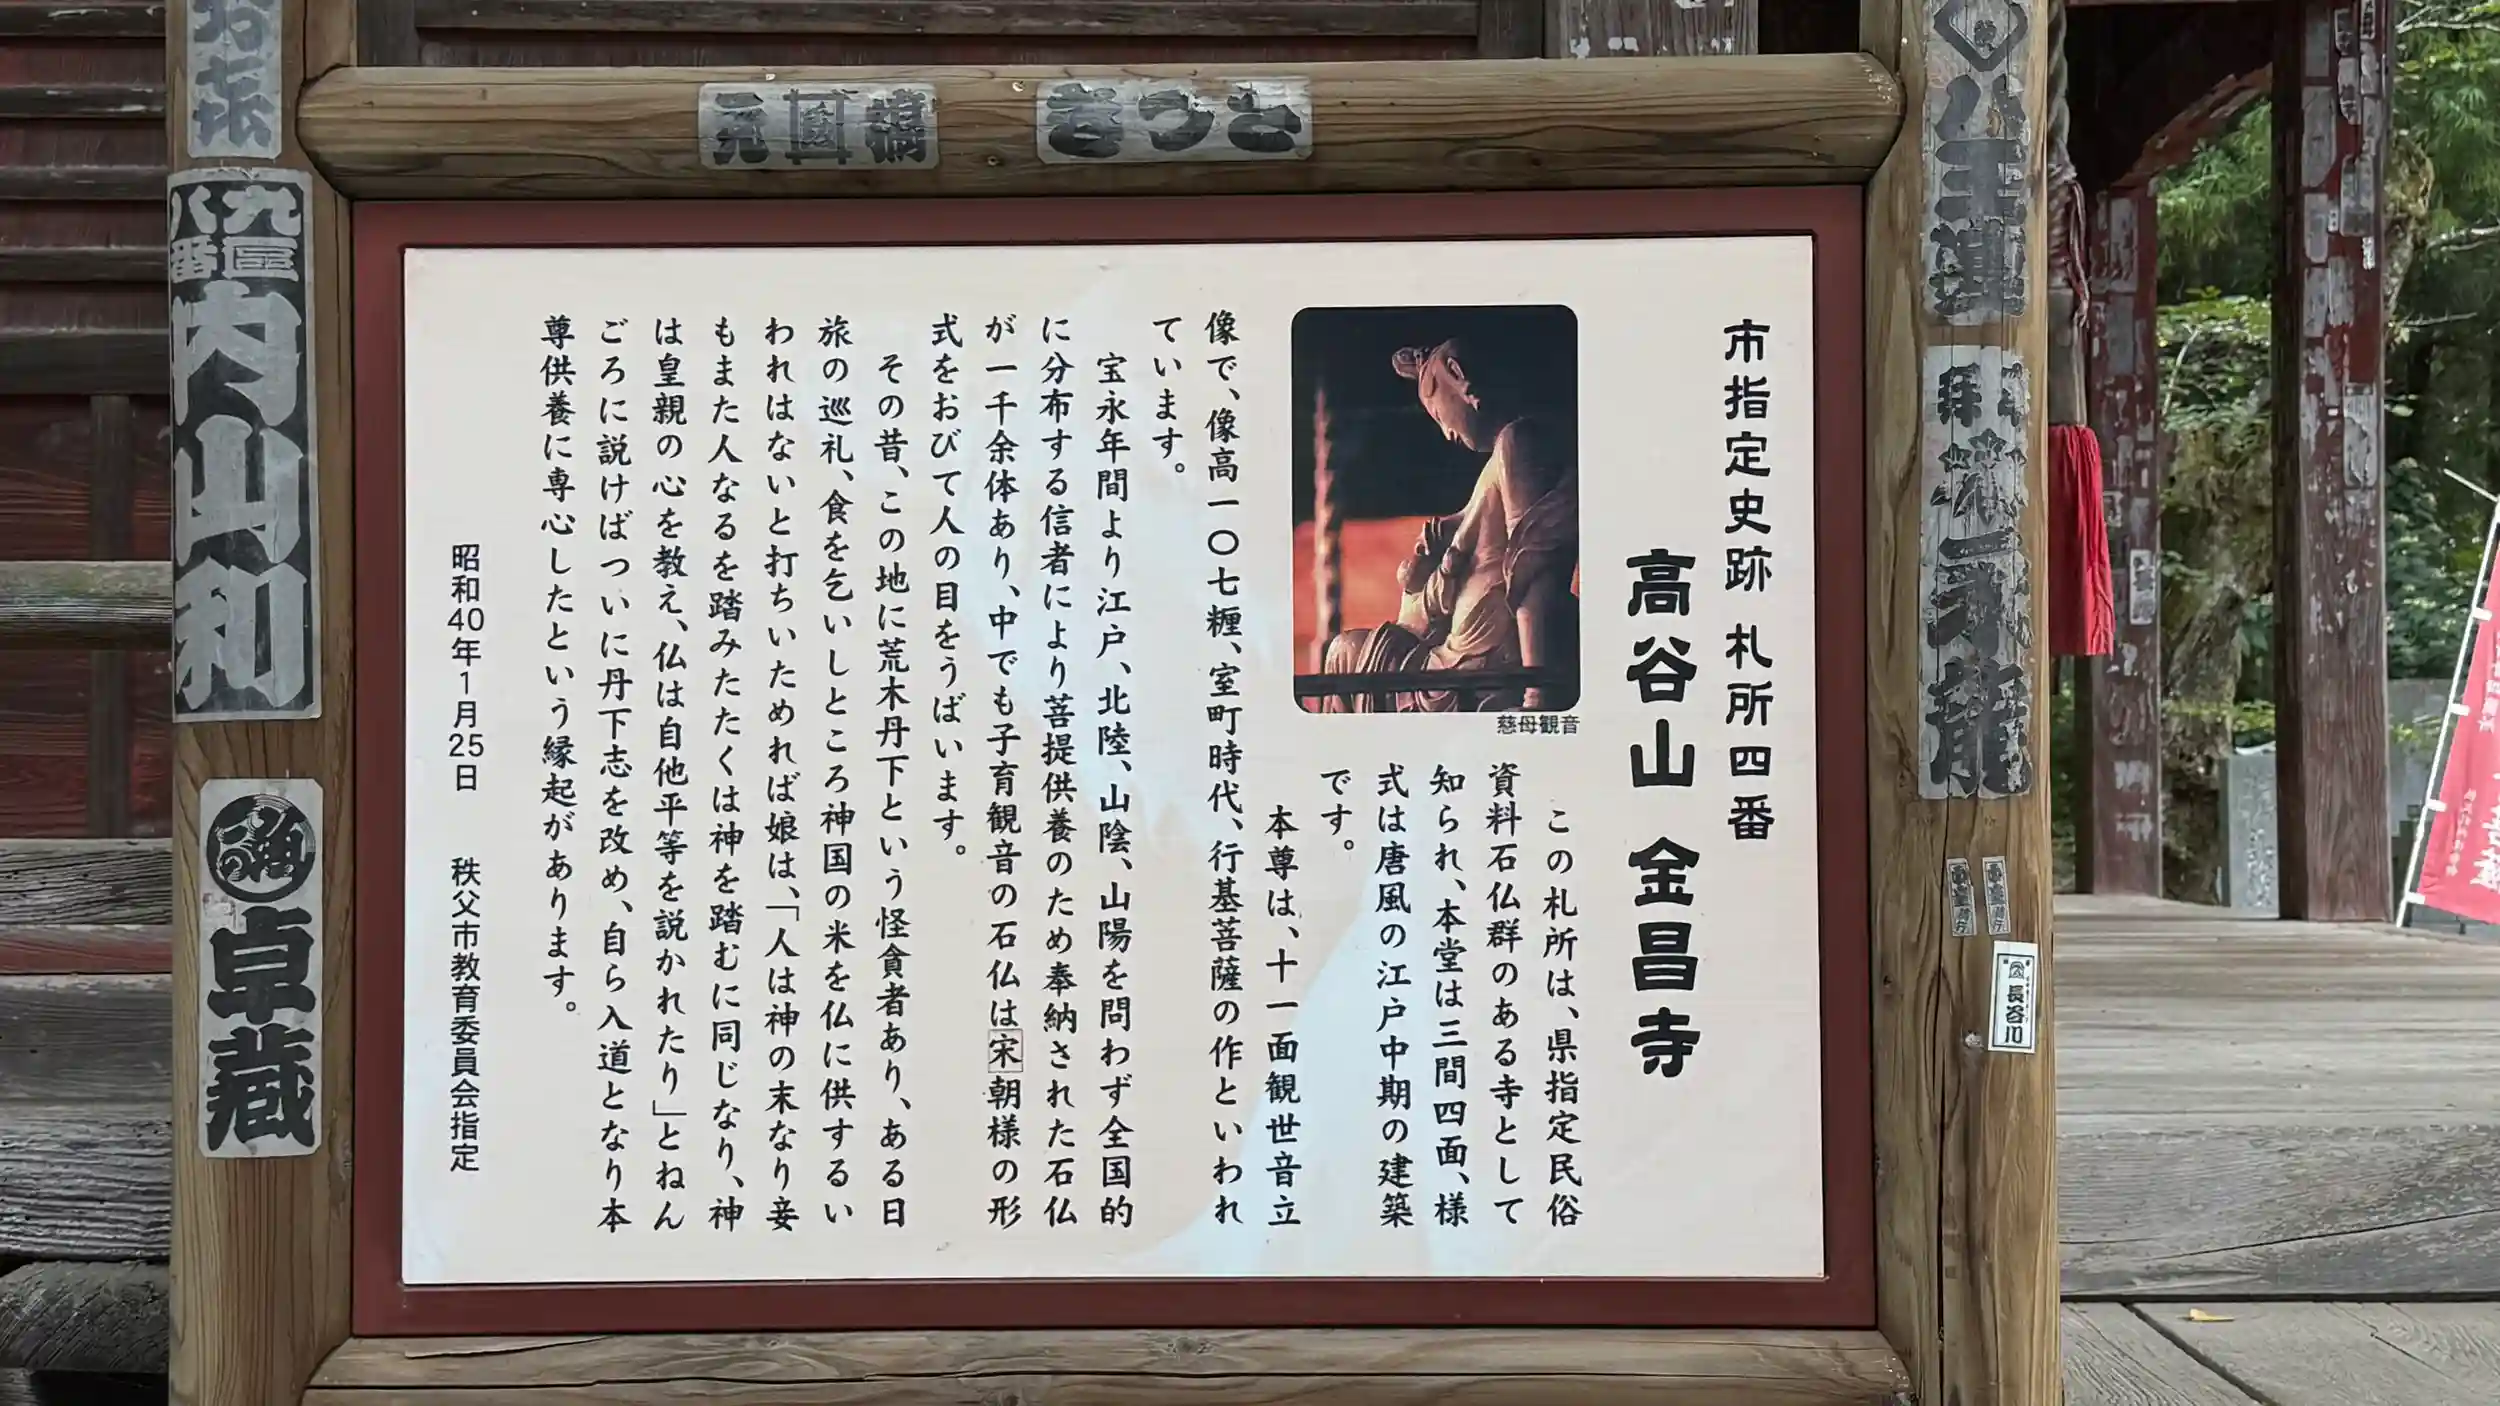 市指定史跡 札所四番
高谷山 金昌寺
この札所は、県指定民俗
資料石仏群のある寺として
知られ、本堂は三間四面、様
式は唐風の江戸中期の建築
です。
本尊は、十一面観世音立
像で、像高一〇七糎、室町時代、行基菩薩の作といわれ
ています。
宝永年間より江戸、北陸、山陰、山陽を問わず全国的
に分布する信者により菩提供養のため奉納された石仏
が一千余体あり、中でも子育観音の石仏は宋朝様の形
式をおびて人の目をうばいます。
その昔、この地に荒木丹下という怪貪者あり、ある日
旅の巡礼、食を乞いしところ神国の米を仏に供するい
われはないと打ちいためれば娘は、「人は神の末なり妾
もまた人なるを踏みたたくは神を踏むに同じなり、神
は皇親の心を教え、仏は自他平等を説かれたり」とねん
ごろに説けばついに丹下志を改め、自ら入道となり本
尊供養に専心したという縁起があります。
昭和40年1月25日 秩父市教育委員会指定
慈母観音
元国橋
きつと
九区
八番
内山和
卓蔵
長谷川